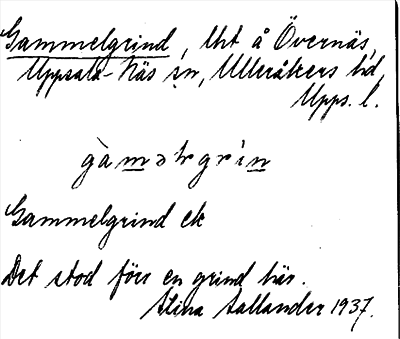 Gammelgrind, lht å Övernäs,
Uppsala-Näs sn, Ulleråkers hd,
Upps. l.
gàməlgrìn
Gammelgrind
Det stod förr en grind här.
Stina Sallander 1937.